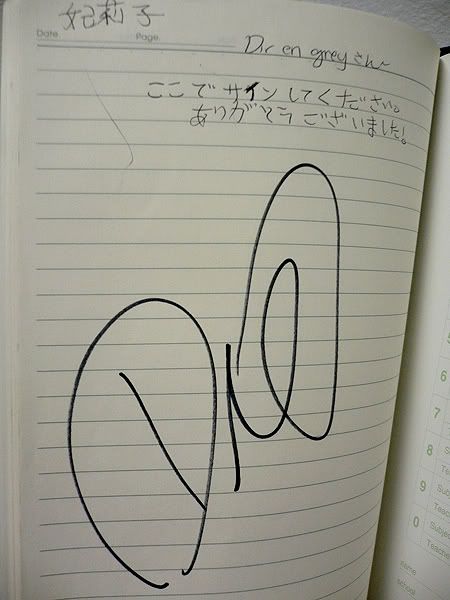 妃莉子
Date. Page.
Dir en greyさんへ
ここでサインしてください。
ありがとうございました!
6
7
8
9
0
Te
Sub
Teac
Subje
Teache
name
school